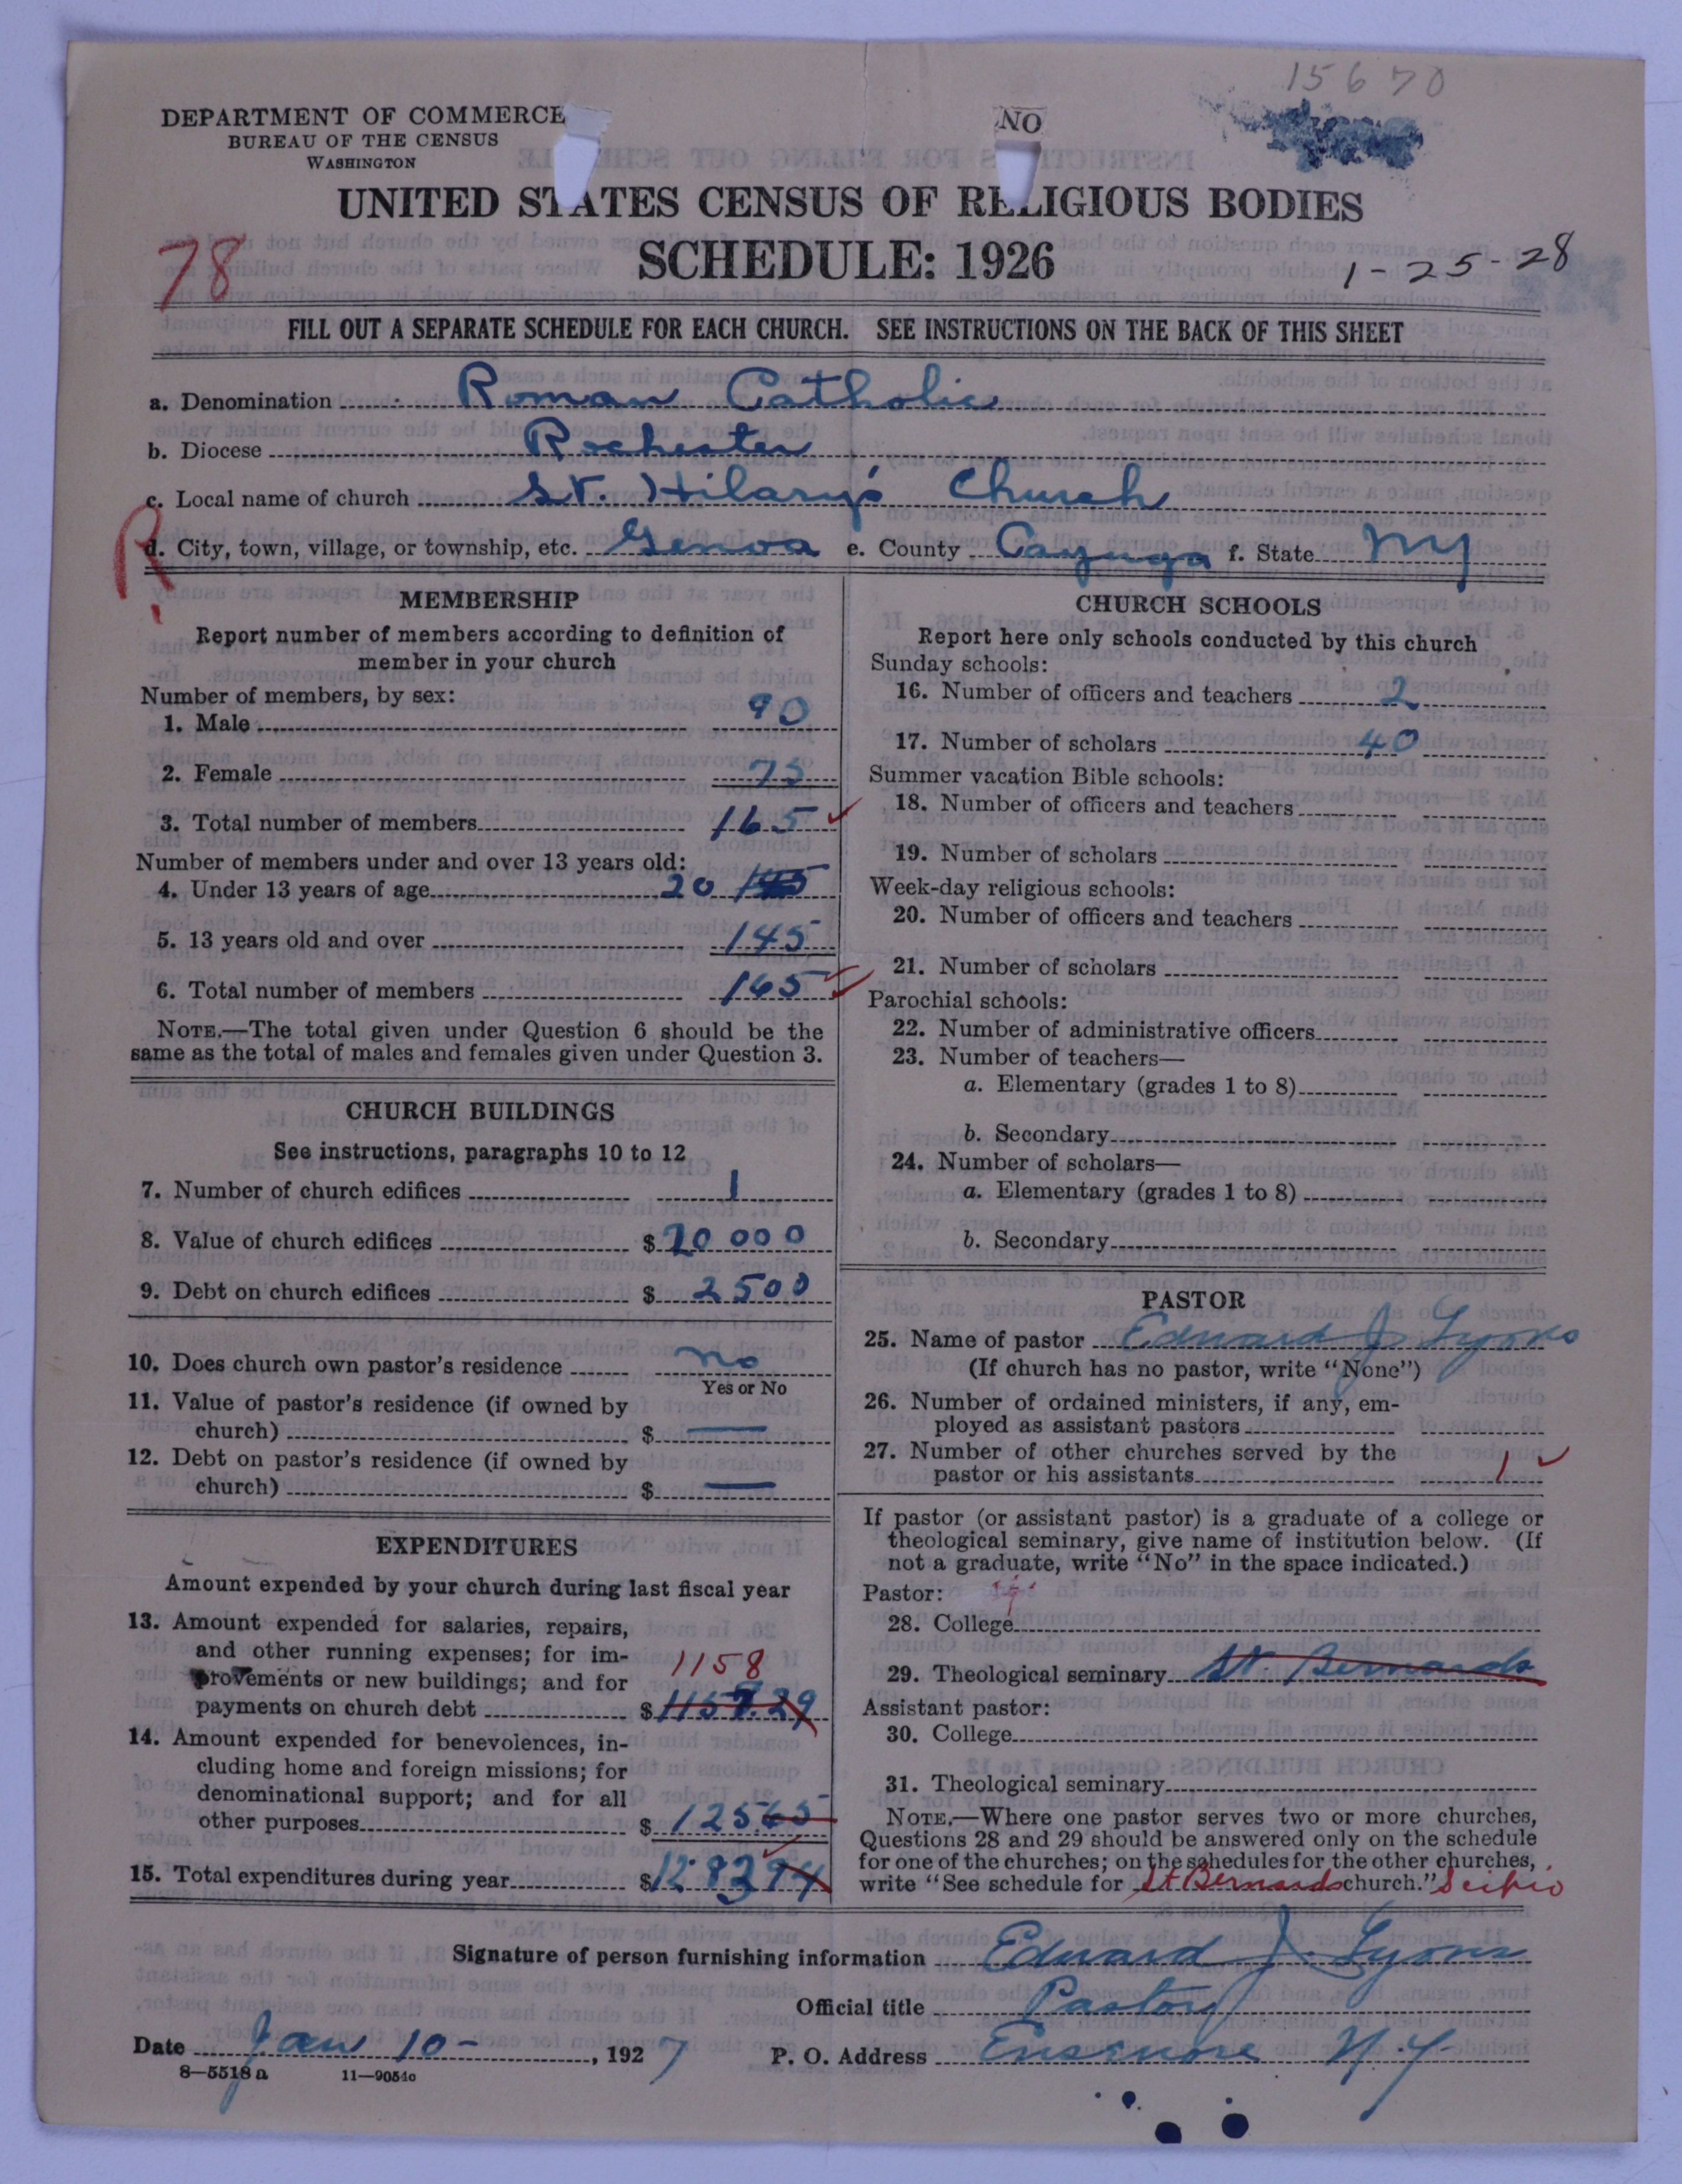 15670
DEPARTMENT OF COMMERCE
BUREAU OF THE CENSUS
WASHINGTON
NO
UNITED STATES CENSUS OF RELIGIOUS BODIES
SCHEDULE: 1926
78
1-25-28
FILL OUT A SEPARATE SCHEDULE FOR EACH CHURCH. SEE INSTRUCTIONS ON THE BACK OF THIS SHEET
a. Denomination Roman Catholic
b. Diocese Rochester
c. Local name of church St. Hilary's Church
R
d. City, town, village, or township, etc. Genoa e. County Cayuga f. State NY
MEMBERSHIP
Report number of members according to definition of
member in your church
Number of members, by sex:
1. Male 90
2. Female 75
3. Total number of members 165
Number of members under and over 13 years old:
4. Under 13 years of age 20
5. 13 years old and over 145
6. Total number of members 165
NOTE.—The total given under Question 6 should be the
same as the total of males and females given under Question 3.
CHURCH BUILDINGS
See instructions, paragraphs 10 to 12
7. Number of church edifices 1
8. Value of church edifices $ 20 000
9. Debt on church edifices $ 2500
10. Does church own pastor's residence no
Yes or No
11. Value of pastor's residence (if owned by
church) $ —
12. Debt on pastor's residence (if owned by
church) $ —
EXPENDITURES
Amount expended by your church during last fiscal year
13. Amount expended for salaries, repairs,
and other running expenses; for im-
provements or new buildings; and for
1158
payments on church debt $ 1157.29
14. Amount expended for benevolences, in-
cluding home and foreign missions; for
denominational support; and for all
other purposes $ 125.65
15. Total expenditures during year $
CHURCH SCHOOLS
Report here only schools conducted by this church
Sunday schools:
16. Number of officers and teachers 2
17. Number of scholars 40
Summer vacation Bible schools:
18. Number of officers and teachers
19. Number of scholars
Week-day religious schools:
20. Number of officers and teachers
21. Number of scholars
Parochial schools:
22. Number of administrative officers
23. Number of teachers—
a. Elementary (grades 1 to 8)
b. Secondary
24. Number of scholars—
a. Elementary (grades 1 to 8)
b. Secondary
PASTOR
25. Name of pastor Edward J Lyons
(If church has no pastor, write "None")
26. Number of ordained ministers, if any, em-
ployed as assistant pastors
27. Number of other churches served by the
pastor or his assistants 1
If pastor (or assistant pastor) is a graduate of a college or
theological seminary, give name of institution below. (If
not a graduate, write "No" in the space indicated.)
Pastor:
28. College
29. Theological seminary St. Bernards
Assistant pastor:
30. College
31. Theological seminary
NOTE.—Where one pastor serves two or more churches,
Questions 28 and 29 should be answered only on the schedule
for one of the churches; on the schedules for the other churches,
write "See schedule for St Bernards church." Scipio
Signature of person furnishing information Edward J. Lyons
Official title Pastor
Date Jan 10-, 1927 P. O. Address Ensenore N.Y.
8—5518a 11—9054c